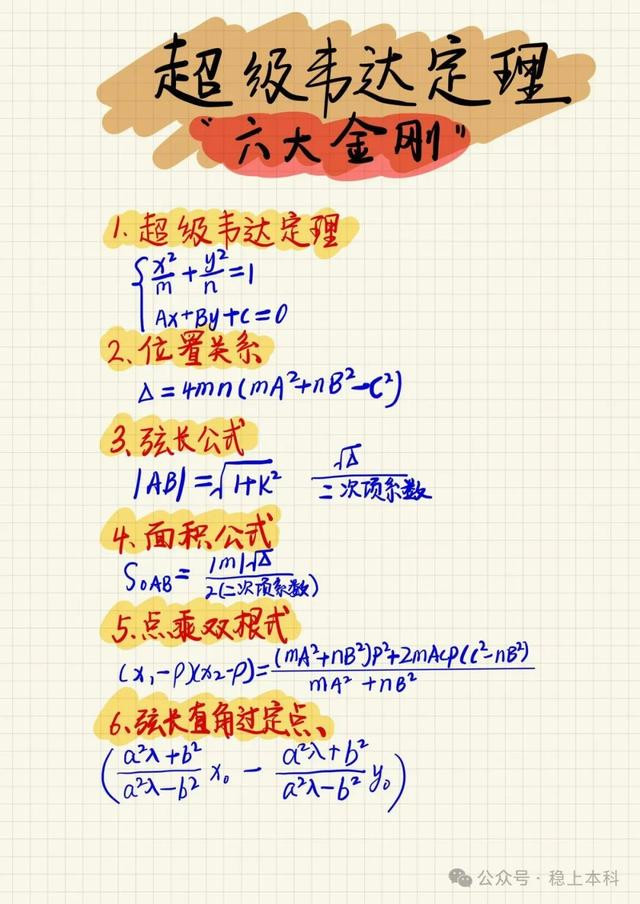 超级韦达定理
"六大金刚"
1.超级韦达定理
{x²/m + y²/n = 1
Ax+By+C=0
2.位置关系
Δ=4mn(mA²+nB²-C²)
3.弦长公式
|AB|=√(1+K²) √Δ/二次项系数
4.面积公式
S₀AB=|m|√Δ/2(二次项系数)
5.点乘双根式
(x₁-p)(x₂-p)=(mA²+nB²)p²+2mAcp(c²-nB²)/mA²+nB²
6.弦长直角过定点、
(a²λ+b²/a²λ-b² x₀ - a²λ+b²/a²λ-b² y₀)
公众号·稳上本科